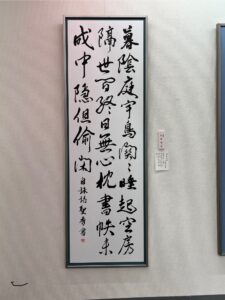 暮陰庭宇鳥関々睡起空房
隔世間終日無心枕書帙未
成中隠但偷閑
自詠詩